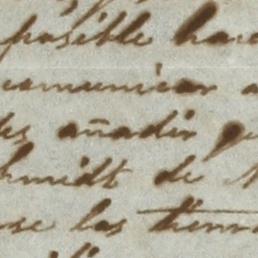 posible hace
comunicar a
les añadir qu
hmidt de
se las tierra